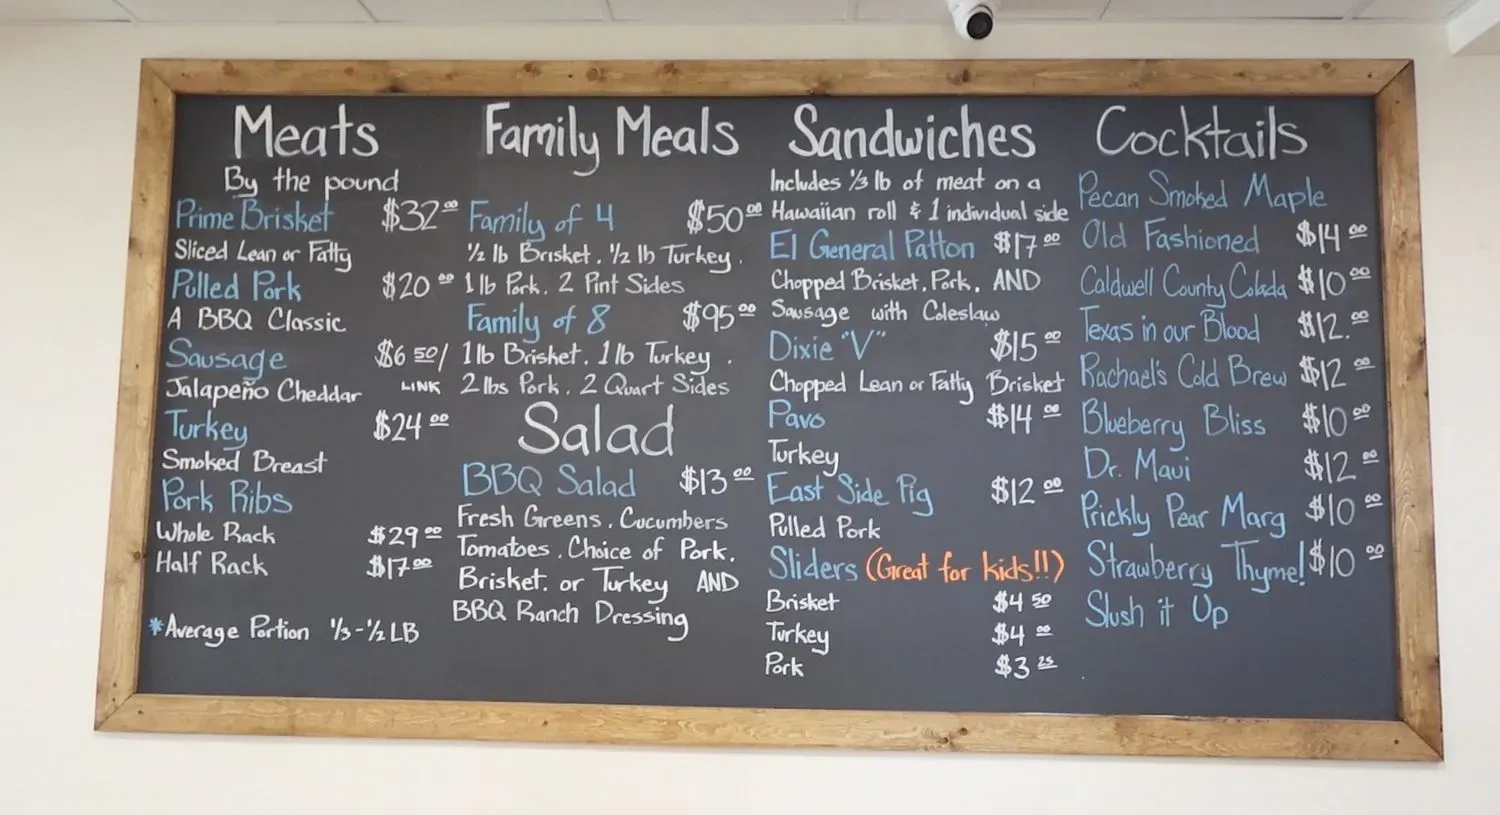 Meats
By the pound
Prime Brisket $32.00
Sliced Lean or Fatty
Pulled Pork $20.00
A BBQ Classic
Sausage $6 50/
Jalapeño Cheddar LINK
Turkey $24.00
Smoked Breast
Pork Ribs
Whole Rack $29.00
Half Rack $17.00
*Average Portion 1/3-1/2 LB
Family Meals
Family of 4 $50.00
1/2 lb Brisket, 1/2 lb Turkey,
1 lb Pork, 2 Pint Sides
Family of 8 $95.00
1 lb Brisket, 1 lb Turkey,
2 lbs Pork, 2 Quart Sides
Salad
BBQ Salad $13.00
Fresh Greens, Cucumbers
Tomatoes, Choice of Pork,
Brisket, or Turkey AND
BBQ Ranch Dressing
Sandwiches
Includes 1/3 lb of meat on a
Hawaiian roll & 1 individual side
El General Patton $17.00
Chopped Brisket, Pork, AND
Sausage with Coleslaw
Dixie "V" $15.00
Chopped Lean or Fatty Brisket
Pavo $14.00
Turkey
East Side Pig $12.00
Pulled Pork
Sliders (Great for kids!!)
Brisket $4.50
Turkey $4.00
Pork $3.25
Cocktails
Pecan Smoked Maple
Old Fashioned $14.00
Caldwell County Colada $10.00
Texas in our Blood $12.00
Rachael's Cold Brew $12.00
Blueberry Bliss $10.00
Dr. Maui $12.00
Prickly Pear Marg $10.00
Strawberry Thyme! $10.00
Slush it Up